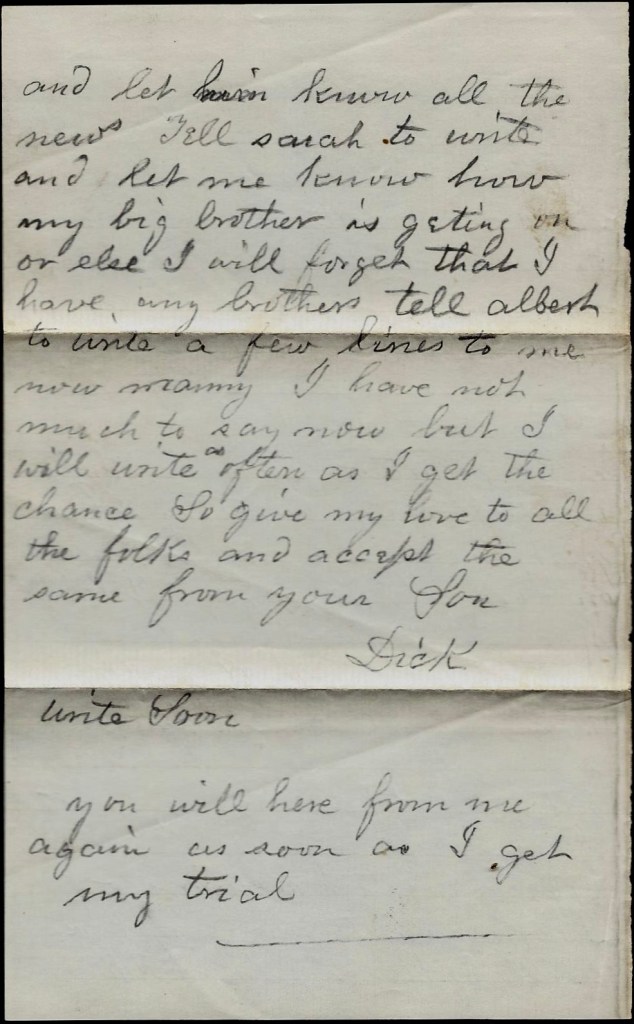 and let him know all the
news Tell sarah to write
and let me know how
my big brother is geting on
or else I will forget that I
have any brothers tell albert
to write a few lines to me
now mamy I have not
much to say now but I
will write as often as I get the
chance So give my love to all
the folks and accept the
same from your Son
Dick
write Soon
you will here from me
again as soon as I get
my trial